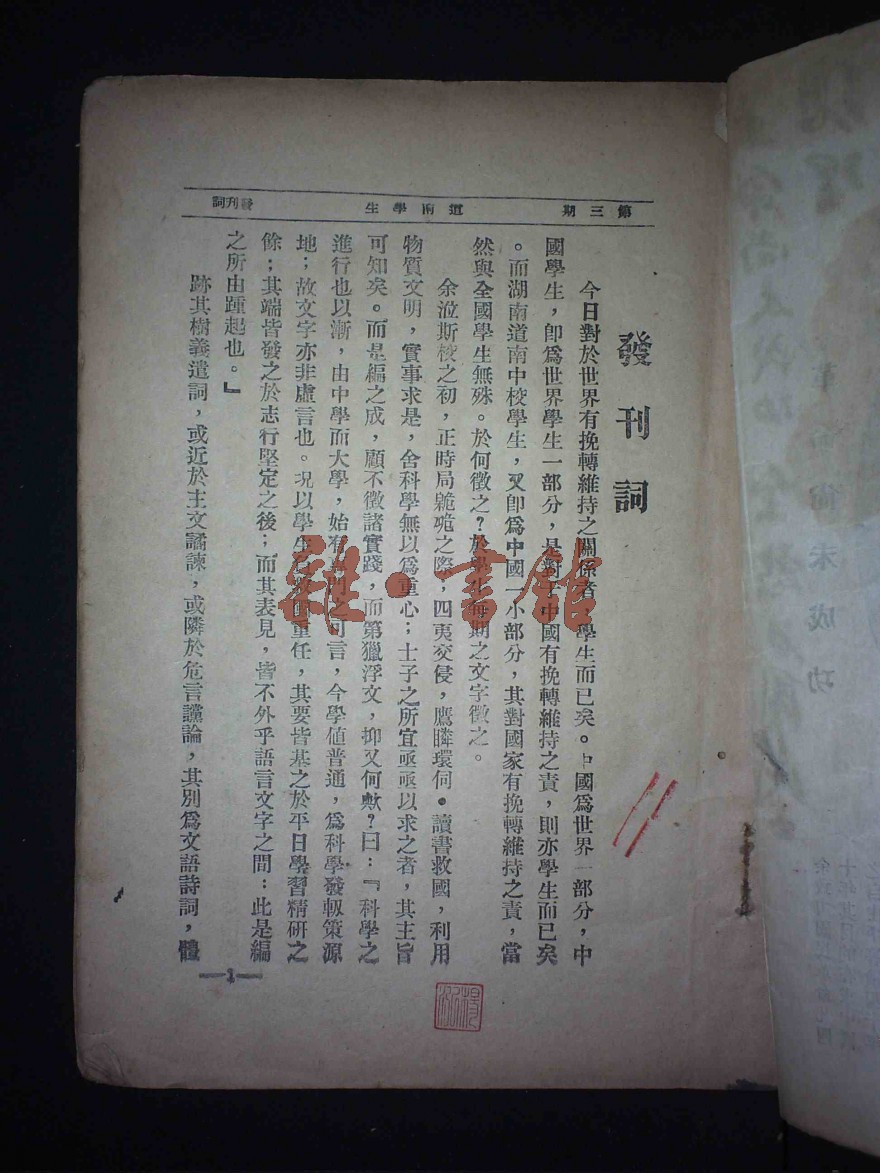 第三期
道南學生
發刊詞
發刊詞
今日對於世界有挽轉維持之關係者，學生而已矣。中國爲世界一部分，中
國學生，卽爲世界學生一部分，是對于中國有挽轉維持之責，則亦學生而已矣
。而湖南道南中校學生，又卽爲中國一小部分，其對國家有挽轉維持之責，當
然與全國學生無殊。於何徵之？於學生每期之文字徵之。
余涖斯校之初，正時局臲卼之際，四夷交侵，鷹瞵環伺。讀書救國，利用
物質文明，實事求是，舍科學無以爲重心；士子之所宜亟亟以求之者，其主旨
可知矣。而是編之成，顧不徵諸實踐，而第獵浮文，抑又何歟？曰：『科學之
進行也以漸，由中學而大學，始有專門之可言，今學値普通，爲科學發軔策源
地；故文字亦非虛言也。況以學生救國重任，其要皆基之於平日學習精研之
餘；其端皆發之於志行堅定之後；而其表見，皆不外乎語言文字之間：此是編
之所由踵起也。』
跡其樹義遣詞，或近於主文譎諫，或隣於危言讜論，其別爲文語詩詞，體
1
雜·書館
革命尚未成功